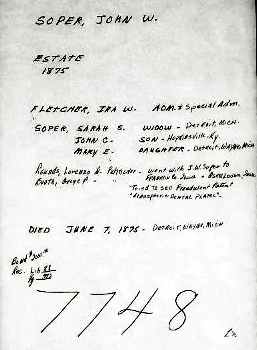 SOPER, JOHN W.
ESTATE
1875
FLETCHER, IRA W. ADM. & Special Adm.
SOPER, SARAH E. WIDOW - Detroit, Mich.
JOHN C. SON - Hopkinsville, Ky.
MARY E. DAUGHTER - Detroit, Wayne, Mich
Rounds, Lorenzo D. Petitioner - went with J.W. Soper to
George P.
"Tried to sell Fraudulent Patent
DENTAL PLATE"
DIED JUNE 7, 1875 - Detroit, Wayne, Mich
Bond
Rec. Lib
7748